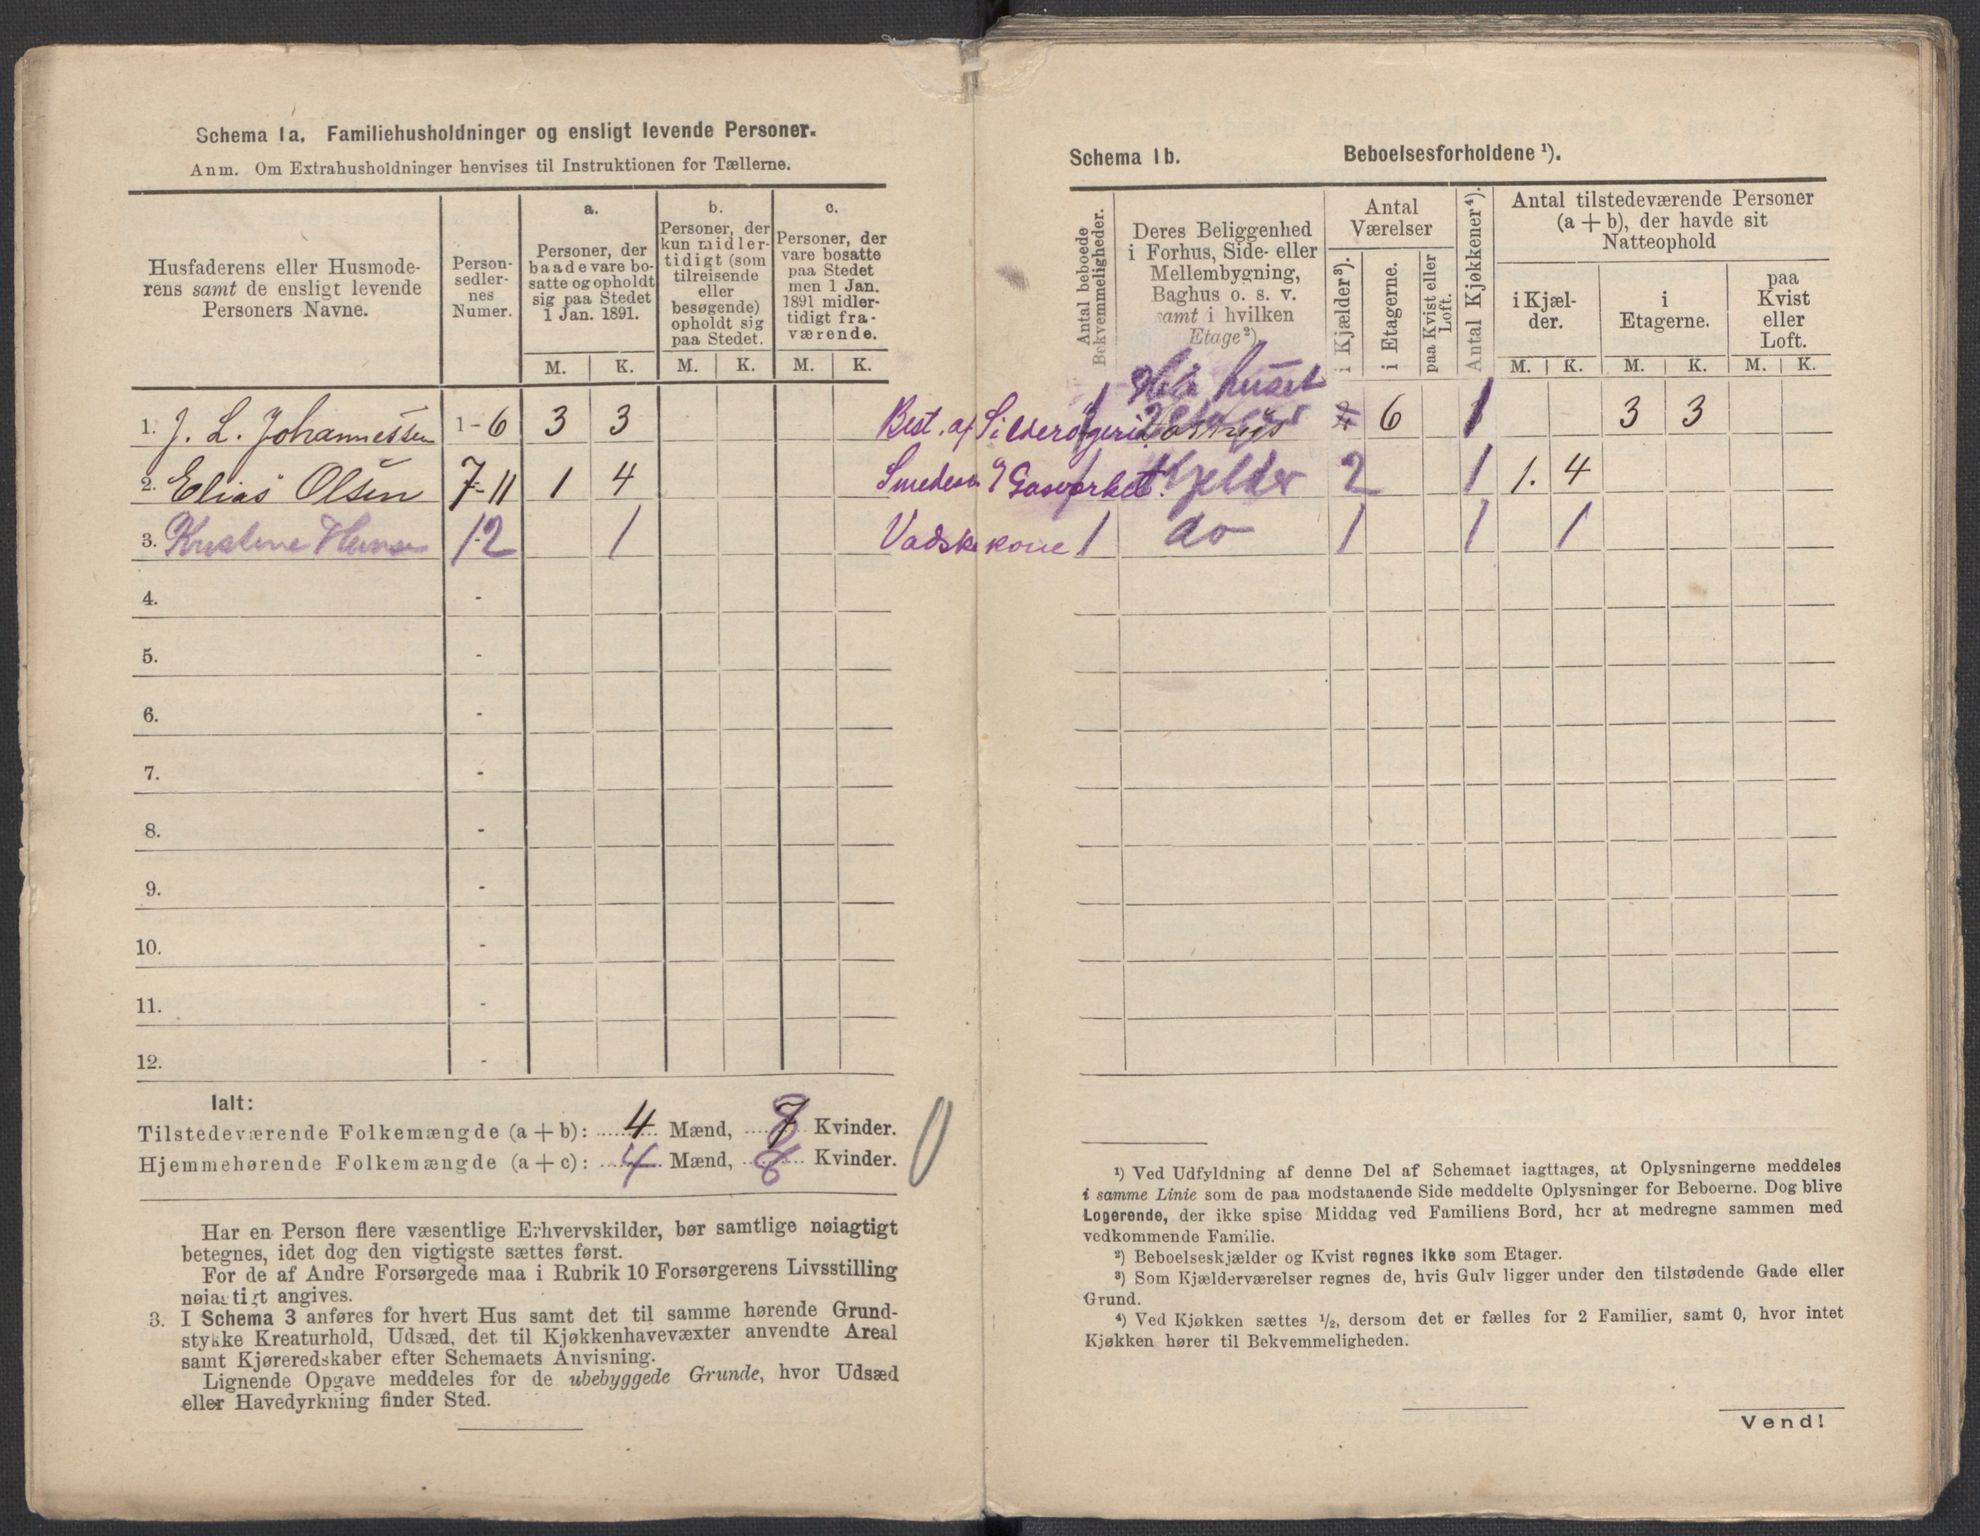 Schema 1a. Familiehusholdninger og ensligt levende Personer.
Anm. Om Extrahusholdninger henvises til Instruktionen for Tællerne.
Husfaderens eller Husmode-
rens samt de ensligt levende
Personers Navne.
Person-
sedler-
nes
Numer.
a.
Personer, der
baade vare bo-
satte og opholdt
sig paa Stedet
1 Jan. 1891.
b.
Personer, der
kun midler-
tidigt (som
tilreisende
eller
besøgende)
opholdt sig
paa Stedet.
c.
Personer, der
vare bosatte
paa Stedet
men 1 Jan.
1891 midler-
tidigt fra-
værende.
M. K. M. K. M. K.
1. J. L. Johannessen 1-6 3 3
2. Elias Olsen 7-11 1 4
3. Kristine Hansen 12 1
4. -
5. -
6. -
7. -
8. -
9. -
10. -
11. -
12. -
Ialt:
Tilstedeværende Folkemængde (a + b): 4 Mænd, 8 Kvinder.
Hjemmehørende Folkemængde (a + c): 4 Mænd, 8 Kvinder.
0
Har en Person flere væsentlige Erhvervskilder, bør samtlige nøiagtigt
betegnes, idet dog den vigtigste sættes først.
For de af Andre Forsørgede maa i Rubrik 10 Forsørgerens Livsstilling
nøiagtigt angives.
3. I Schema 3 anføres for hvert Hus samt det til samme hørende Grund-
stykke Kreaturhold, Udsæd, det til Kjøkkenhavevæxter anvendte Areal
samt Kjøreredskaber efter Schemaets Anvisning.
Lignende Opgave meddeles for de ubebyggede Grunde, hvor Udsæd
eller Havedyrkning finder Sted.
Schema 1b. Beboelsesforholdene ¹).
Antal beboede
Bekvemmeligheder.
Deres Beliggenhed
i Forhus, Side- eller
Mellembygning,
Baghus o. s. v.
samt i hvilken
Etage²)
Antal
Værelser
i Kjælder³).
i Etagerne.
paa Kvist eller
Loft.
Antal Kjøkkener⁴).
Antal tilstedeværende Personer
(a + b), der havde sit
Natteophold
i Kjæl-
der.
i
Etagerne.
paa
Kvist
eller
Loft.
M. K. M. K. M. K.
Hele huset
Best. af Silderøgeri 1 6 1 3 3
Smedesv. Gasværket. 1 Kjelder 2 1 1. 4
Vadskekone 1 do 1 1 1
¹) Ved Udfyldning af denne Del af Schemaet iagttages, at Oplysningerne meddeles
i samme Linie som de paa modstaaende Side meddelte Oplysninger for Beboerne. Dog blive
Logerende, der ikke spise Middag ved Familiens Bord, her at medregne sammen med
vedkommende Familie.
²) Beboelseskjælder og Kvist regnes ikke som Etager.
³) Som Kjælderværelser regnes de, hvis Gulv ligger under den tilstødende Gade eller
Grund.
⁴) Ved Kjøkken sættes ½, dersom det er fælles for 2 Familier, samt 0, hvor intet
Kjøkken hører til Bekvemmeligheden.
Vend!